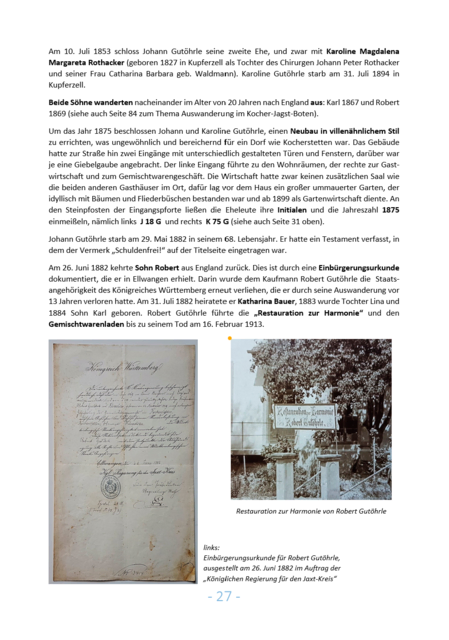 Am 10. Juli 1853 schloss Johann Gutöhrle seine zweite Ehe, und zwar mit Karoline Magdalena
Margareta Rothacker (geboren 1827 in Kupferzell als Tochter des Chirurgen Johann Peter Rothacker
und seiner Frau Catharina Barbara geb. Waldmann). Karoline Gutöhrle starb am 31. Juli 1894 in
Kupferzell.
Beide Söhne wanderten nacheinander im Alter von 20 Jahren nach England aus: Karl 1867 und Robert
1869 (siehe auch Seite 84 zum Thema Auswanderung im Kocher-Jagst-Boten).
Um das Jahr 1875 beschlossen Johann und Karoline Gutöhrle, einen Neubau in villenähnlichem Stil
zu errichten, was ungewöhnlich und bereichernd für ein Dorf wie Kocherstetten war. Das Gebäude
hatte zur Straße hin zwei Eingänge mit unterschiedlich gestalteten Türen und Fenstern, darüber war
je eine Giebelgaube angebracht. Der linke Eingang führte zu den Wohnräumen, der rechte zur Gast-
wirtschaft und zum Gemischtwarengeschäft. Die Wirtschaft hatte zwar keinen zusätzlichen Saal wie
die beiden anderen Gasthäuser im Ort, dafür lag vor dem Haus ein großer ummauerter Garten, der
idyllisch mit Bäumen und Fliederbüschen bestanden war und ab 1899 als Gartenwirtschaft diente. An
den Steinpfosten der Eingangspforte ließen die Eheleute ihre Initialen und die Jahreszahl 1875
einmeißeln, nämlich links J 18 G und rechts K 75 G (siehe auch Seite 31 oben).
Johann Gutöhrle starb am 29. Mai 1882 in seinem 68. Lebensjahr. Er hatte ein Testament verfasst, in
dem der Vermerk „Schuldenfrei!“ auf der Titelseite eingetragen war.
Am 26. Juni 1882 kehrte Sohn Robert aus England zurück. Dies ist durch eine Einbürgerungsurkunde
dokumentiert, die er in Ellwangen erhielt. Darin wurde dem Kaufmann Robert Gutöhrle die Staats-
angehörigkeit des Königreiches Württemberg erneut verliehen, die er durch seine Auswanderung vor
13 Jahren verloren hatte. Am 31. Juli 1882 heiratete er Katharina Bauer, 1883 wurde Tochter Lina und
1884 Sohn Karl geboren. Robert Gutöhrle führte die „Restauration zur Harmonie“ und den
Gemischtwarenladen bis zu seinem Tod am 16. Februar 1913.
Königreich Württemberg
Restauration zur Harmonie
Robert Gutöhrle
Restauration zur Harmonie von Robert Gutöhrle
links:
Einbürgerungsurkunde für Robert Gutöhrle,
ausgestellt am 26. Juni 1882 im Auftrag der
„Königlichen Regierung für den Jaxt-Kreis“
- 27 -